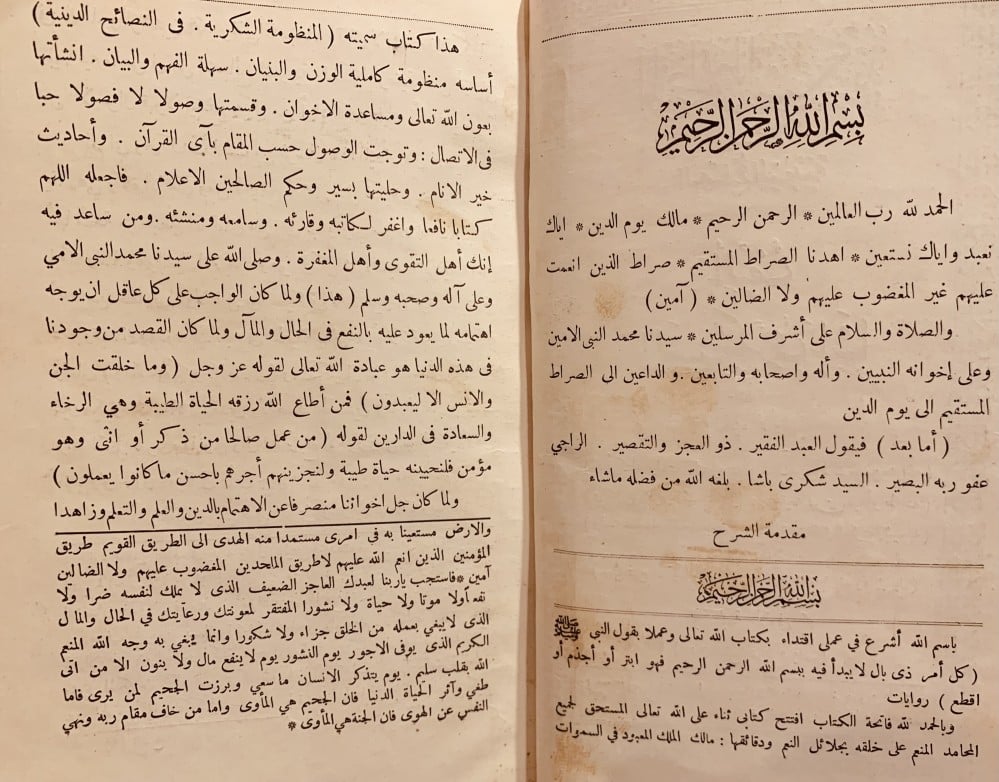 بسم الله الرحمن الرحيم
الحمد لله رب العالمين * الرحمن الرحيم * مالك يوم الدين * اياك
نعبد واياك نستعين * اهدنا الصراط المستقيم * صراط الذين انعمت
عليهم غير المغضوب عليهم ولا الضالين * ( آمين )
والصلاة والسلام على أشرف المرسلين * سيدنا محمد النبى الامين
وعلى إخوانه النبيين . وأله واصحابه والتابعين . والداعين الى الصراط
المستقيم الى يوم الدين
( أما بعد ) فيقول العبد الفقير . ذو العجز والتقصير . الراجي
عفو ربه البصير . السيد شكرى باشا . بلغه الله من فضله ماشاء
مقدمة الشرح
بسم الله الرحمن الرحيم
باسم الله أشرع في عملى اقتداء بكتاب الله تعالى وعملا بقول النبي ﷺ
( كل أمر ذى بال لا يبدأ فيه ببسم الله الرحمن الرحيم فهو ابتر أو أجذم أو
اقطع ) روايات
وبالحمد لله فاتحة الكتاب افتتح كتابى ثناء على الله تعالى المستحق لجميع
المحامد المنعم على خلقه بجلائل النعم ودقائقها : مالك الملك المعبود في السموات
هذا كتاب سميته ( المنظومة الشكرية . فى النصائح الدينية )
أساسه منظومة كاملية الوزن والبنيان . سهلة الفهم والبيان . انشأتها
بعون الله تعالى ومساعدة الاخوان . وقسمتها وصولا لا فصولا حبا
فى الاتصال : وتوجت الوصول حسب المقام بآى القرآن . وأحاديث
خير الانام . وحليتها بسير وحكم الصالحين الاعلام . فاجعله اللهم
كتابا نافعا واغفر لكاتبه وقارئه . وسامعه ومنشئه . ومن ساعد فيه
إنك أهل التقوى وأهل المغفرة . وصلى الله على سيدنا محمد النبى الامي
وعلى آله وصحبه وسلم ( هذا ) ولما كان الواجب على كل عاقل ان يوجه
اهتمامه لما يعود عليه بالنفع فى الحال والمآل ولما كان القصد من وجودنا
فى هذه الدنيا هو عبادة الله تعالى لقوله عز وجل ( وما خلقت الجن
والانس الا ليعبدون ) فمن أطاع الله رزقه الحياة الطيبة وهي الرخاء
والسعادة فى الدارين لقوله ( من عمل صالحا من ذكر أو انثى وهو
مؤمن فلنحيينه حياة طيبة ولنجزينهم أجرهم باحسن ما كانوا يعملون )
ولما كان جل اخواننا منصرفا عن الاهتمام بالدين والعلم والتعلم وزاهدا
والارض مستعينا به في امرى مستمدا منه الهدى الى الطريق القويم طريق
المؤمنين الذين انعم الله عليهم لاطريق الملحدين المغضوب عليهم ولا الضالين
آمين * فاستجب ياربنا لعبدك العاجز الضعيف الذى لا يملك لنفسه ضرا ولا
نفعا ولا موتا ولا حياة ولا نشورا المفتقر لمعونتك ورعايتك في الحال والمآل
الذى لايبغي بعمله من الخلق جزاء ولا شكورا وانما يبغي به وجه الله المنعم
الكريم الذى يوفى الاجور يوم النشور يوم لا ينفع مال ولا بنون الا من اتى
الله بقلب سليم . يوم يتذكر الانسان ما سعي وبرزت الجحيم لمن يرى فاما
طغي وآثر الحياة الدنيا فان الجحيم هي المأوى واما من خاف مقام ربه ونهي
النفس عن الهوى فان الجنة هي المأوى *